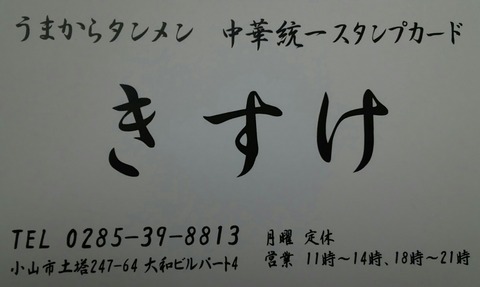 うまからタンメン 中華統一スタンプカード
きすけ
TEL 0285-39-8813
月曜 定休
小山市土塔247-64 大和ビルパート4
営業 11時～14時、18時～21時